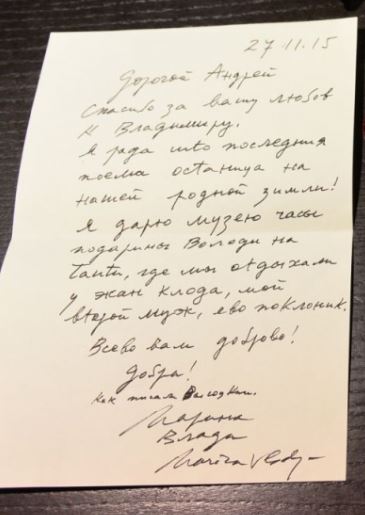 27.11.15
Дорогой Андрей
Спасибо за вашу любов
к Владимиру.
Я рада што последния
поема останица на
нашей родной зимли!
Я дарю музею часы
подарины Володи на
таити, где мы отдыхали
у жан клода, мой
второй муж, ево поклоник.
Всево вам доброво!
Добра!
как писал Володя.
Марина
Влади
Marina Vlady